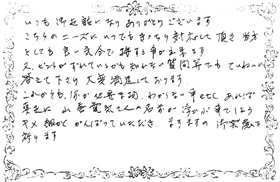 いつも御世話になり ありがとうございます
こちらのニーズに いつでも きちり 対応して 頂き 当方
としても 良い気分で 接する事が出来ます
又、ピントがずれているかも知れない質問等でも ていねいに
答えて下さり 大変満足しております
これからも、何か必要な物、わからない事 etc あれば
早速に 山香 さんの名前が 浮かぶ事でしょう
キメ細かく がんばっていただき、ますますの 御発展を
祈ります